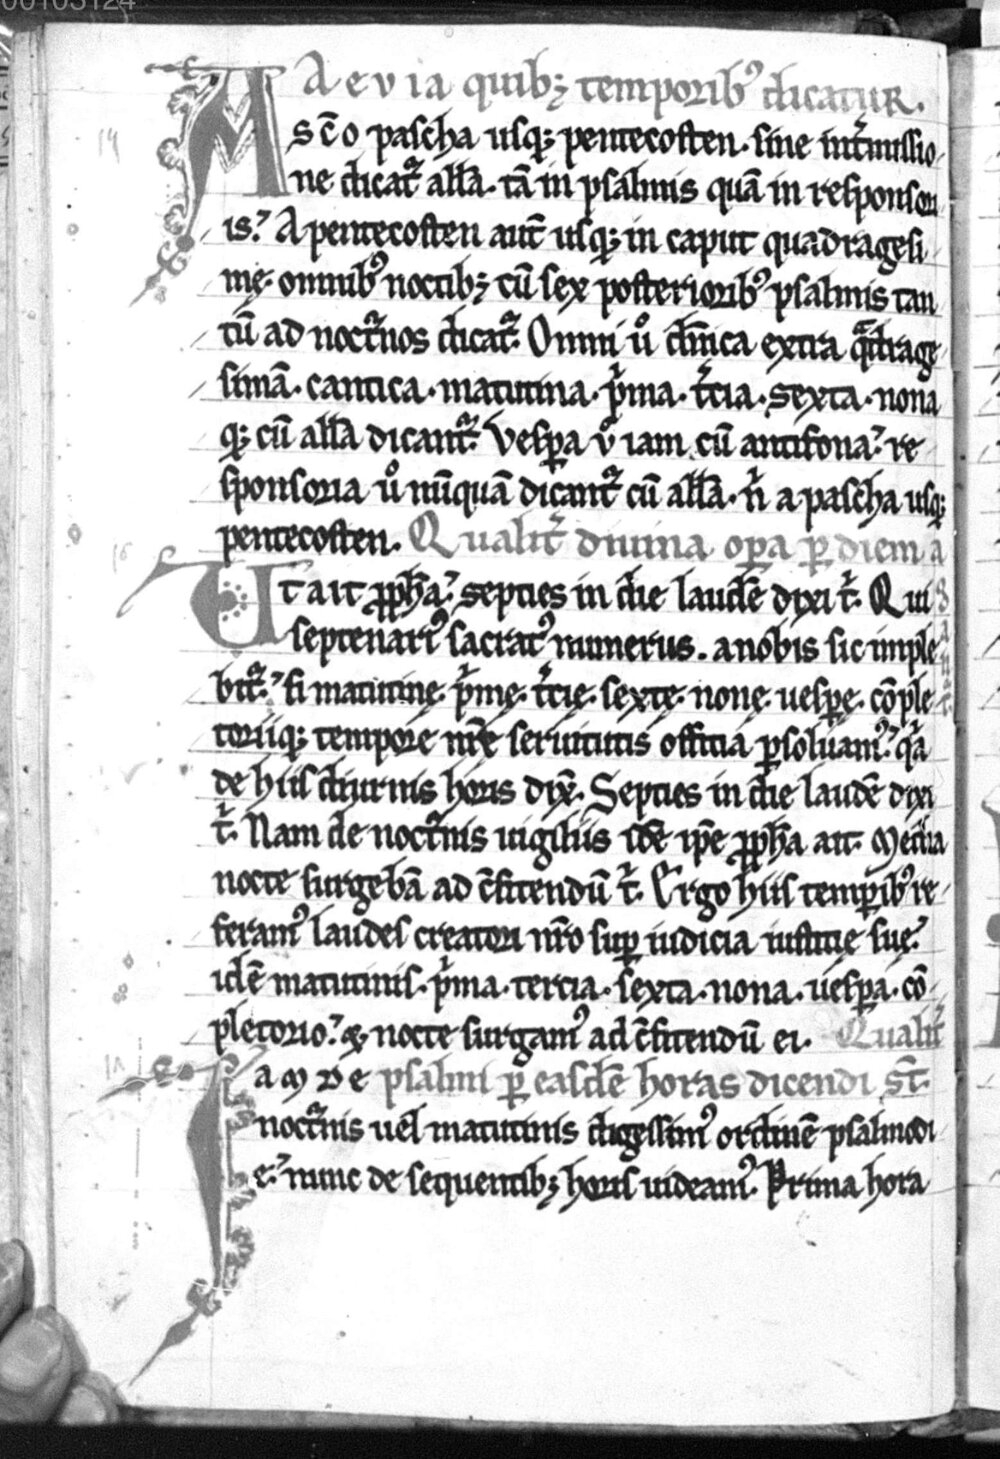 00103124
Aevia quibꝫ temporibꝰ dicatur.
A sc̄o pascha usqꝫ pentecosten. sine int̄missio
ne dicat᷑ all̄a. tā in psalmis quā in responsori
is. A pentecosten aut̄ usqꝫ in caput quadragesi
mę omnibꝰ noctibꝫ cū sex posterioribꝰ psalmis tan
tū ad noct᷑nos dicat᷑. Omni ů dn̄ica extra q̄drage
simā. cantica. matutina. p̍ma. t̄cia. sexta. nona
qꝫ cū all̄a dicant᷑. Vespa v̊ iam cū antifona. re
sponsoria ů nūquā dicant᷑ cū all̄a. n̍ a pascha usqꝫ
pentecosten. Qualit̄ divina oꝑa ꝑ diem a
Ut ait ꝓph̄a. septies in die laudē dixi t̍. Qui gant̄
septenariꝰ sacratꝰ numerus. a nobis sic imple
bit᷑. si matutinę. p̍mę. t̄cię. sextę. nonę. uesꝑę. cōple
toriiqꝫ tempore nr̄ę seruitutis officia ꝑsoluamꝰ. q̍a
de hiis diurnis horis dix̄. Septies in die laudē dixi
t̍. Nam de noct᷑nis uigiliis idē ip̄e ꝓph̄a ait. Media
nocte surgebā ad c̄fitendū t̍. Ergo hiis temꝑibꝰ re
feramꝰ laudes creatori nr̄o suꝑ iudicia iustitię suę.
idē matutinis. p̍ma. tercia. sexta. nona. uesꝑa. cō
pletorio. & nocte surgamꝰ ad c̄fitendū ei. Qualit̄
Iam de psalmi ꝑ easdē horas dicendi st̄.
noct᷑nis uel matutinis digessimꝰ ordinē psalmodi
ę. nunc de sequentibꝫ horis uideamꝰ. Prima hora